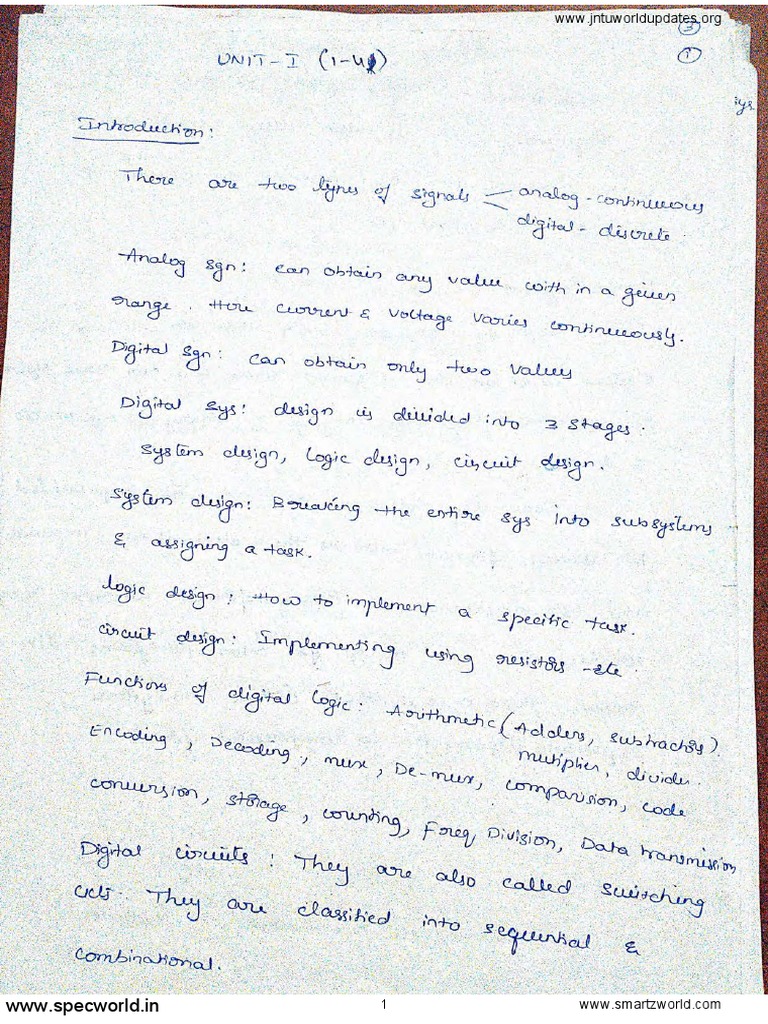 www.jntuworldupdates.org
3
1
UNIT-I (1-4)
sys
Introduction:
There are two types of signals < analog - continuous
digital - discrete.
Analog sgn: can obtain any value with in a given
range. Here current & voltage varies continuously.
Digital sgn: can obtain only two values
Digital sys: design is divided into 3 stages.
System design, logic design, circuit design.
System design: Breaking the entire sys into subsystems
& assigning a task.
Logic design: How to implement a specific task.
Circuit design: Implementing using resistors etc.
Functions of digital logic: Arithmetic (Adders, subtractors).
mutiplier, divider.
Encoding, Decoding, mux, De-mux, comparision, code
conversion, storage, counting, Freq, Division, Data transmission
Digital circuits: They are also called switching
ckts. They are classified into sequential &
combinational.
www.specworld.in
1
www.smartzworld.com